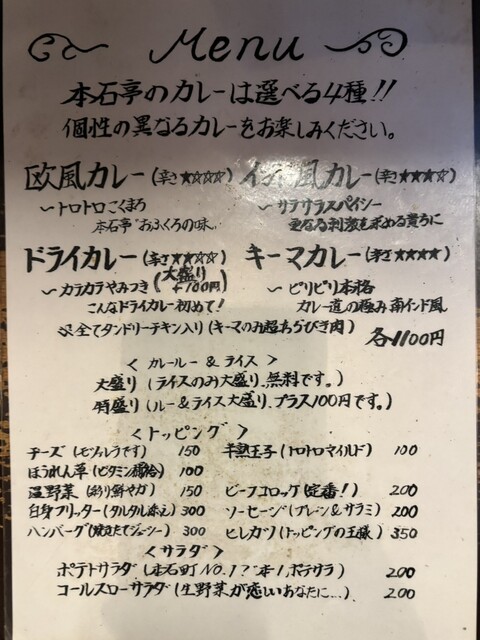 Menu
本石亭のカレーは選べる4種!!
個性の異なるカレーをお楽しみください。
欧風カレー(辛さ★☆☆☆)
〜トロトロこくまろ
本石亭"おふくろの味〟
風カレー(辛さ★★☆☆)
〜サラサラスパイシー
更なる刺激を求める貴方に
ドライカレー(辛さ★★☆☆)
〜カラカラやみつき(大盛り+100円)
こんなドライカレー初めて!
キーマカレー(辛さ★★★★)
〜ピリピリ本格
カレー道の極み南インド風
※全てタンドリーチキン入り(キーマのみ超あらびき肉)
各1100円
<カレールー&ライス>
大盛り(ライスのみ大盛り.無料です。)
特盛り(ルー&ライス大盛り.プラス100円です。)
<トッピング>
チーズ(モッツァレラです) 150
半熟玉子(トロトロマイルド) 100
ほうれん草(ビタミン補給) 100
温野菜(彩り鮮やか) 150
ビーフコロッケ(定番!) 200
白身フリッター(タルタル添え) 300
ソーセージ(プレーン&サラミ) 200
ハンバーグ(焼きたてジューシー) 300
ヒレカツ(トッピングの王様) 350
<サラダ>
ポテトサラダ(本石町NO.1 ポテサラ) 200
コールスローサラダ(生野菜が恋しいあなたに…) 200